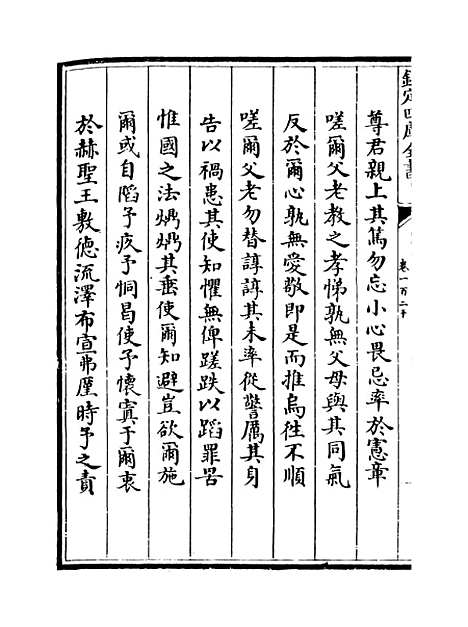 欽定四庫全書
卷一百二十
尊君親上其篤勿忘小心畏忌率於憲章
嗟爾父老教之孝悌孰無父母與其同氣
反於爾心孰無愛敬即是而推烏徃不順
嗟爾父老勿替諄諄其未率從警厲其身
告以禍患其使知懼無俾蹉跌以蹈罪罟
惟國之法焫焫其垂使爾知避豈欲爾施
爾或自䧟予疚予恫曷使予懷寘于爾衷
於赫聖王敷德流澤布宣弗厪時予之責